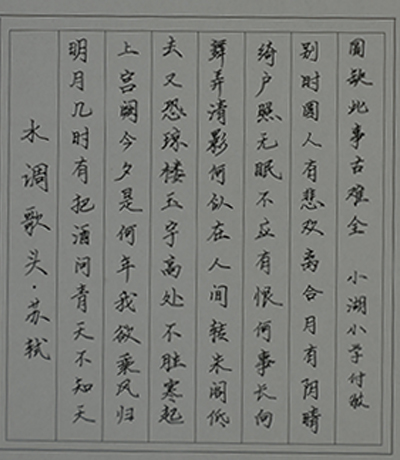 水调歌头·苏轼
明月几时有把酒问青天不知天
上宫阙今夕是何年我欲乘风归
去又恐琼楼玉宇高处不胜寒起
舞弄清影何似在人间转朱阁低
绮户照无眠不应有恨何事长向
别时圆人有悲欢离合月有阴晴
圆缺此事古难全 小湖小学付